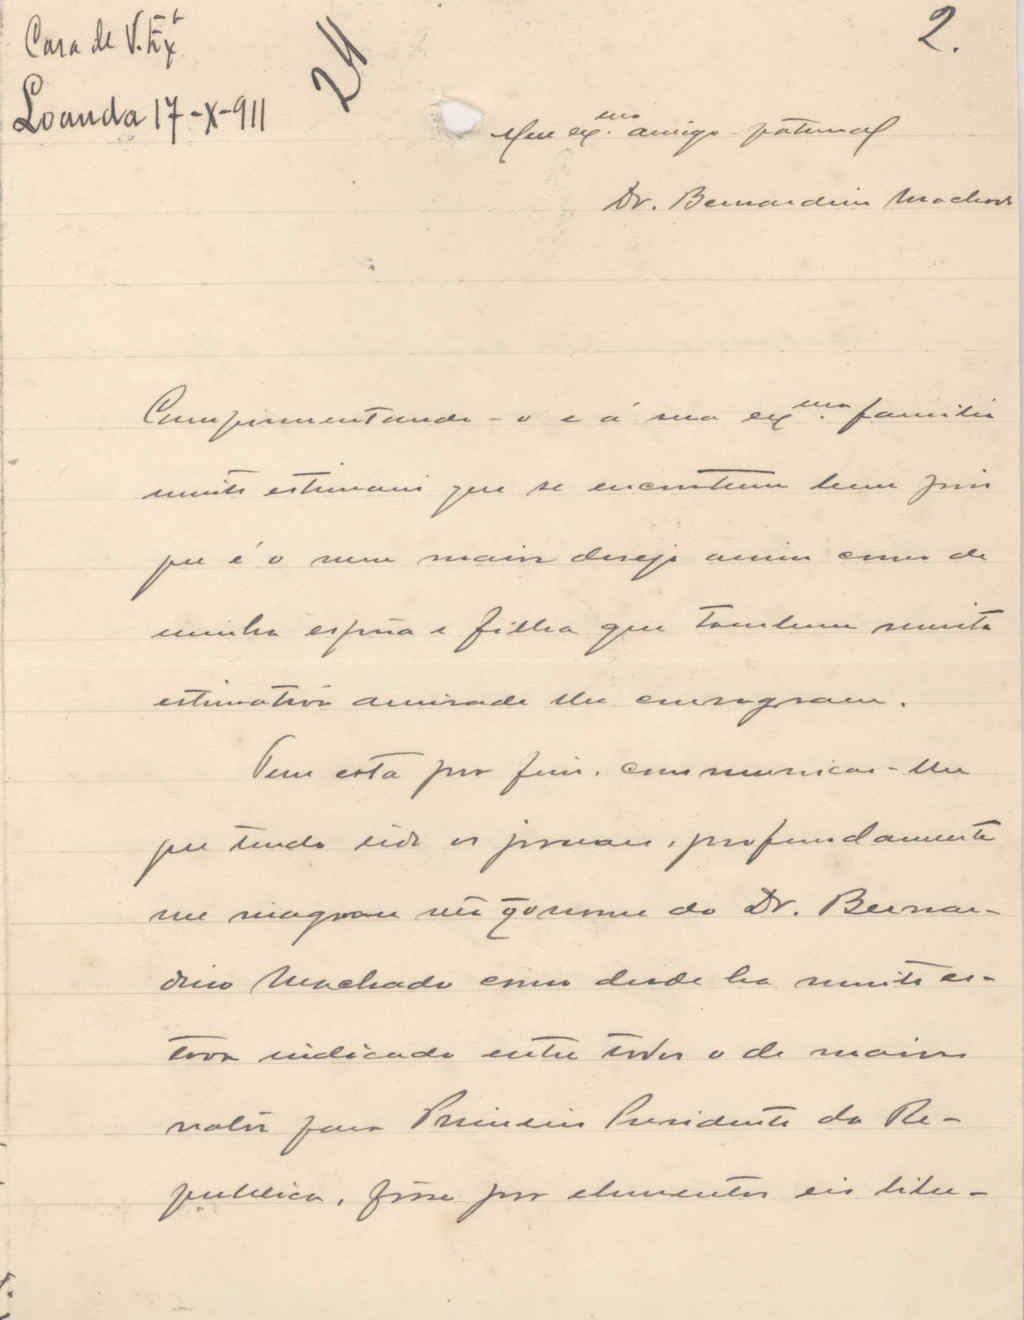 Casa de V. Exª
Loanda 17-X-911
24
2.
Meu exmo. amigo paternal
Dr. Bernardino Machado
Cumprimentando-o e á sua exma. familia
muito estimarei que se encontrem bem pois
que é o meu maior desejo assim como de
minha espôsa e filha que tambem muita
estima e amisade lhe consagram.
Tem esta por fim, communicar-lhe
que tendo lido os jornaes, profundamente
me magoou vêr q̃ o nome do Dr. Bernar-
dino Machado como desde ha muito es-
tava indicado entre todos o de maior
valôr para Primeiro Presidente da Re-
publica, fôsse por elementos